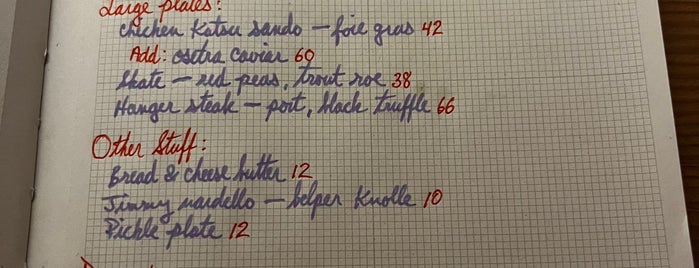 Large plates:
Chicken Katsu sando — foie gras 42
Add: osetra caviar 60
Skate — red peas, trout roe 38
Hanger steak — port, black truffle 66
Other Stuff:
Bread & cheese butter 12
Jimmy nardello — belper Knolle 10
Pickle plate 12